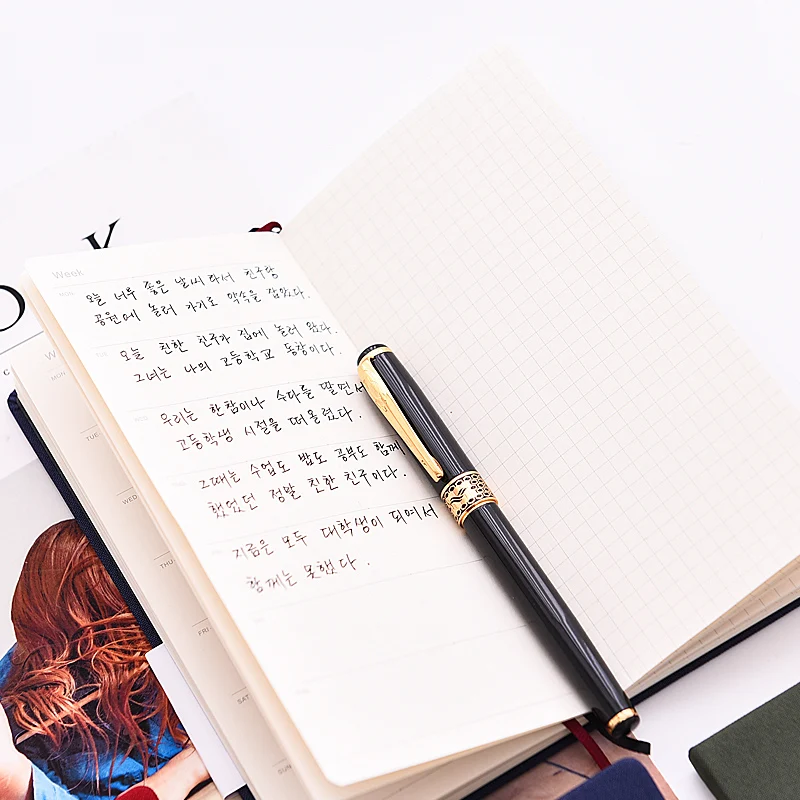 Week
MON
오늘 너무 좋은 날씨라서 친구랑
공원에 놀러 가기로 약속을 잡았다.
오늘 친한 친구가 집에 놀러 왔다.
그녀는 나의 고등학교 동창이다.
우리는 한참이나 수다를 떨면서
고등학생 시절을 떠올렸다.
그때는 수업도 밥도 공부도 함께
했었던 정말 친한 친구이다.
지금은 모두 대학생이 되여서
함께는 못했다.
W
MON
TUE
WED
THU
FRI
SAT
SUN